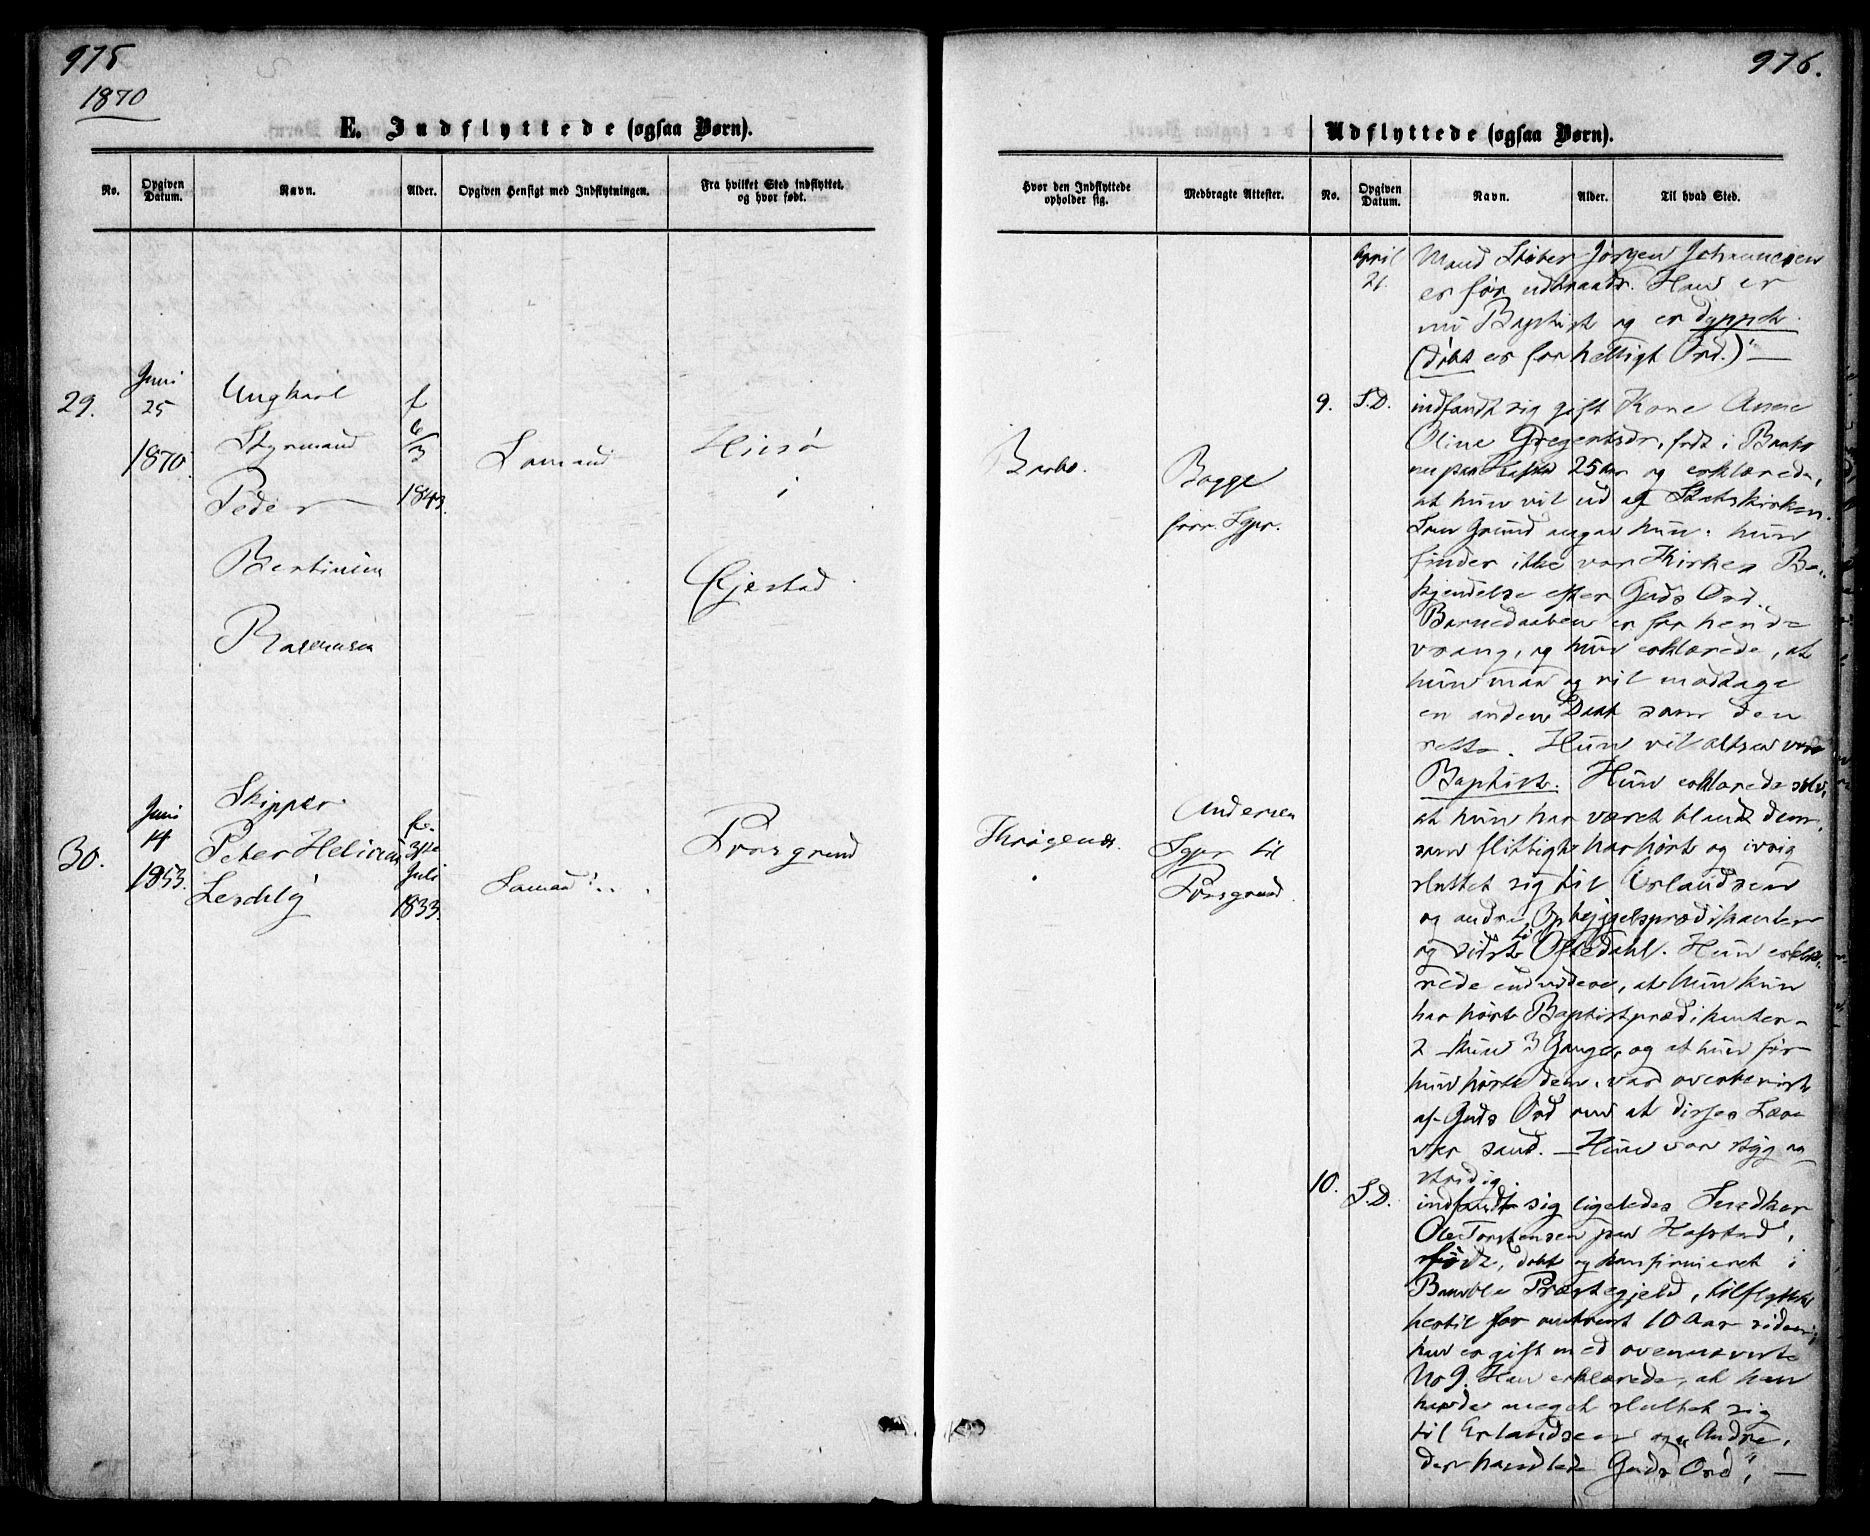 975
1870
E. Indflyttede (ogsaa Børn).
No.
Opgiven Datum.
Navn.
Alder.
Opgiven Hensigt med Indflytningen.
Fra hvilket Sted indflyttet, og hvor født.
29.
Juni
25
1870.
Ungkarl
Styrmand
Peder
Bertinius
Rasmussen
f.
6/3
1843.
Sømand
Hisø
i
Øjestad
Barbo.
Bogge
forr. Sgpr.
30.
Juni
14
1853.
Skipper
Peter
f.
Juli
1833.
Sømand
Porsgrund
Andersen
Sgpr til
Porsgrund.
976.
Udflyttede (ogsaa Børn).
Hvor den Indflyttede opholder sig.
Medbragte Attester.
No.
Opgiven Datum.
Navn.
Alder.
Til hvad Sted.
April
21.
Mand Støber Jørgen Johannesen
er før udtraadt. Han er
nu Baptist og er dyppet
(døbt er for helligt Ord.)" —
9.
S.D.
indfandt sig gift Kone Anne
Oline Gregertsdr, født i Barbo
25 Aar og erklærede,
at hun vil ud af Statskirken.
Som Grund angav hun: hun
finder ikke vor Kirkes Be-
kjendelse efter Guds Ord.
Barnedaaben er for hende
vrang, og hun erklærede, at
hun maa og vil modtage
en anden Daab som den
rette. Hun vil altsaa være
Baptist. Hun erklærede selv,
at hun har været blandt dem,
som flittigt har hørt og ivrig
sluttet sig til Erlandsen
og andre Opbyggelsesprædikanter
og sidst til Oftedahl. Hun erklæ-
rede endvidere, at hun kun
har hørt Baptistprædikanter
2 - kun 3 Gange, og at hun før
hun hørte dem, var overbevist
af Guds Ord om at disses Lære
var sand. — Hun var styg og
stridig.
10.
S.D.
indfandt sig ligeledes Snedker
Ole Torstensen paa Hafstad,
født, døbt og konfirmeret i
Bamble Præstegjeld, tilflyttet
hertil for omtrent 10 Aar siden;
han er gift med ovennævnte
No 9. Han erklærede, at han
havde meget sluttet sig
til Erlandsen og "Andre,
der handlede Guds Ord", —